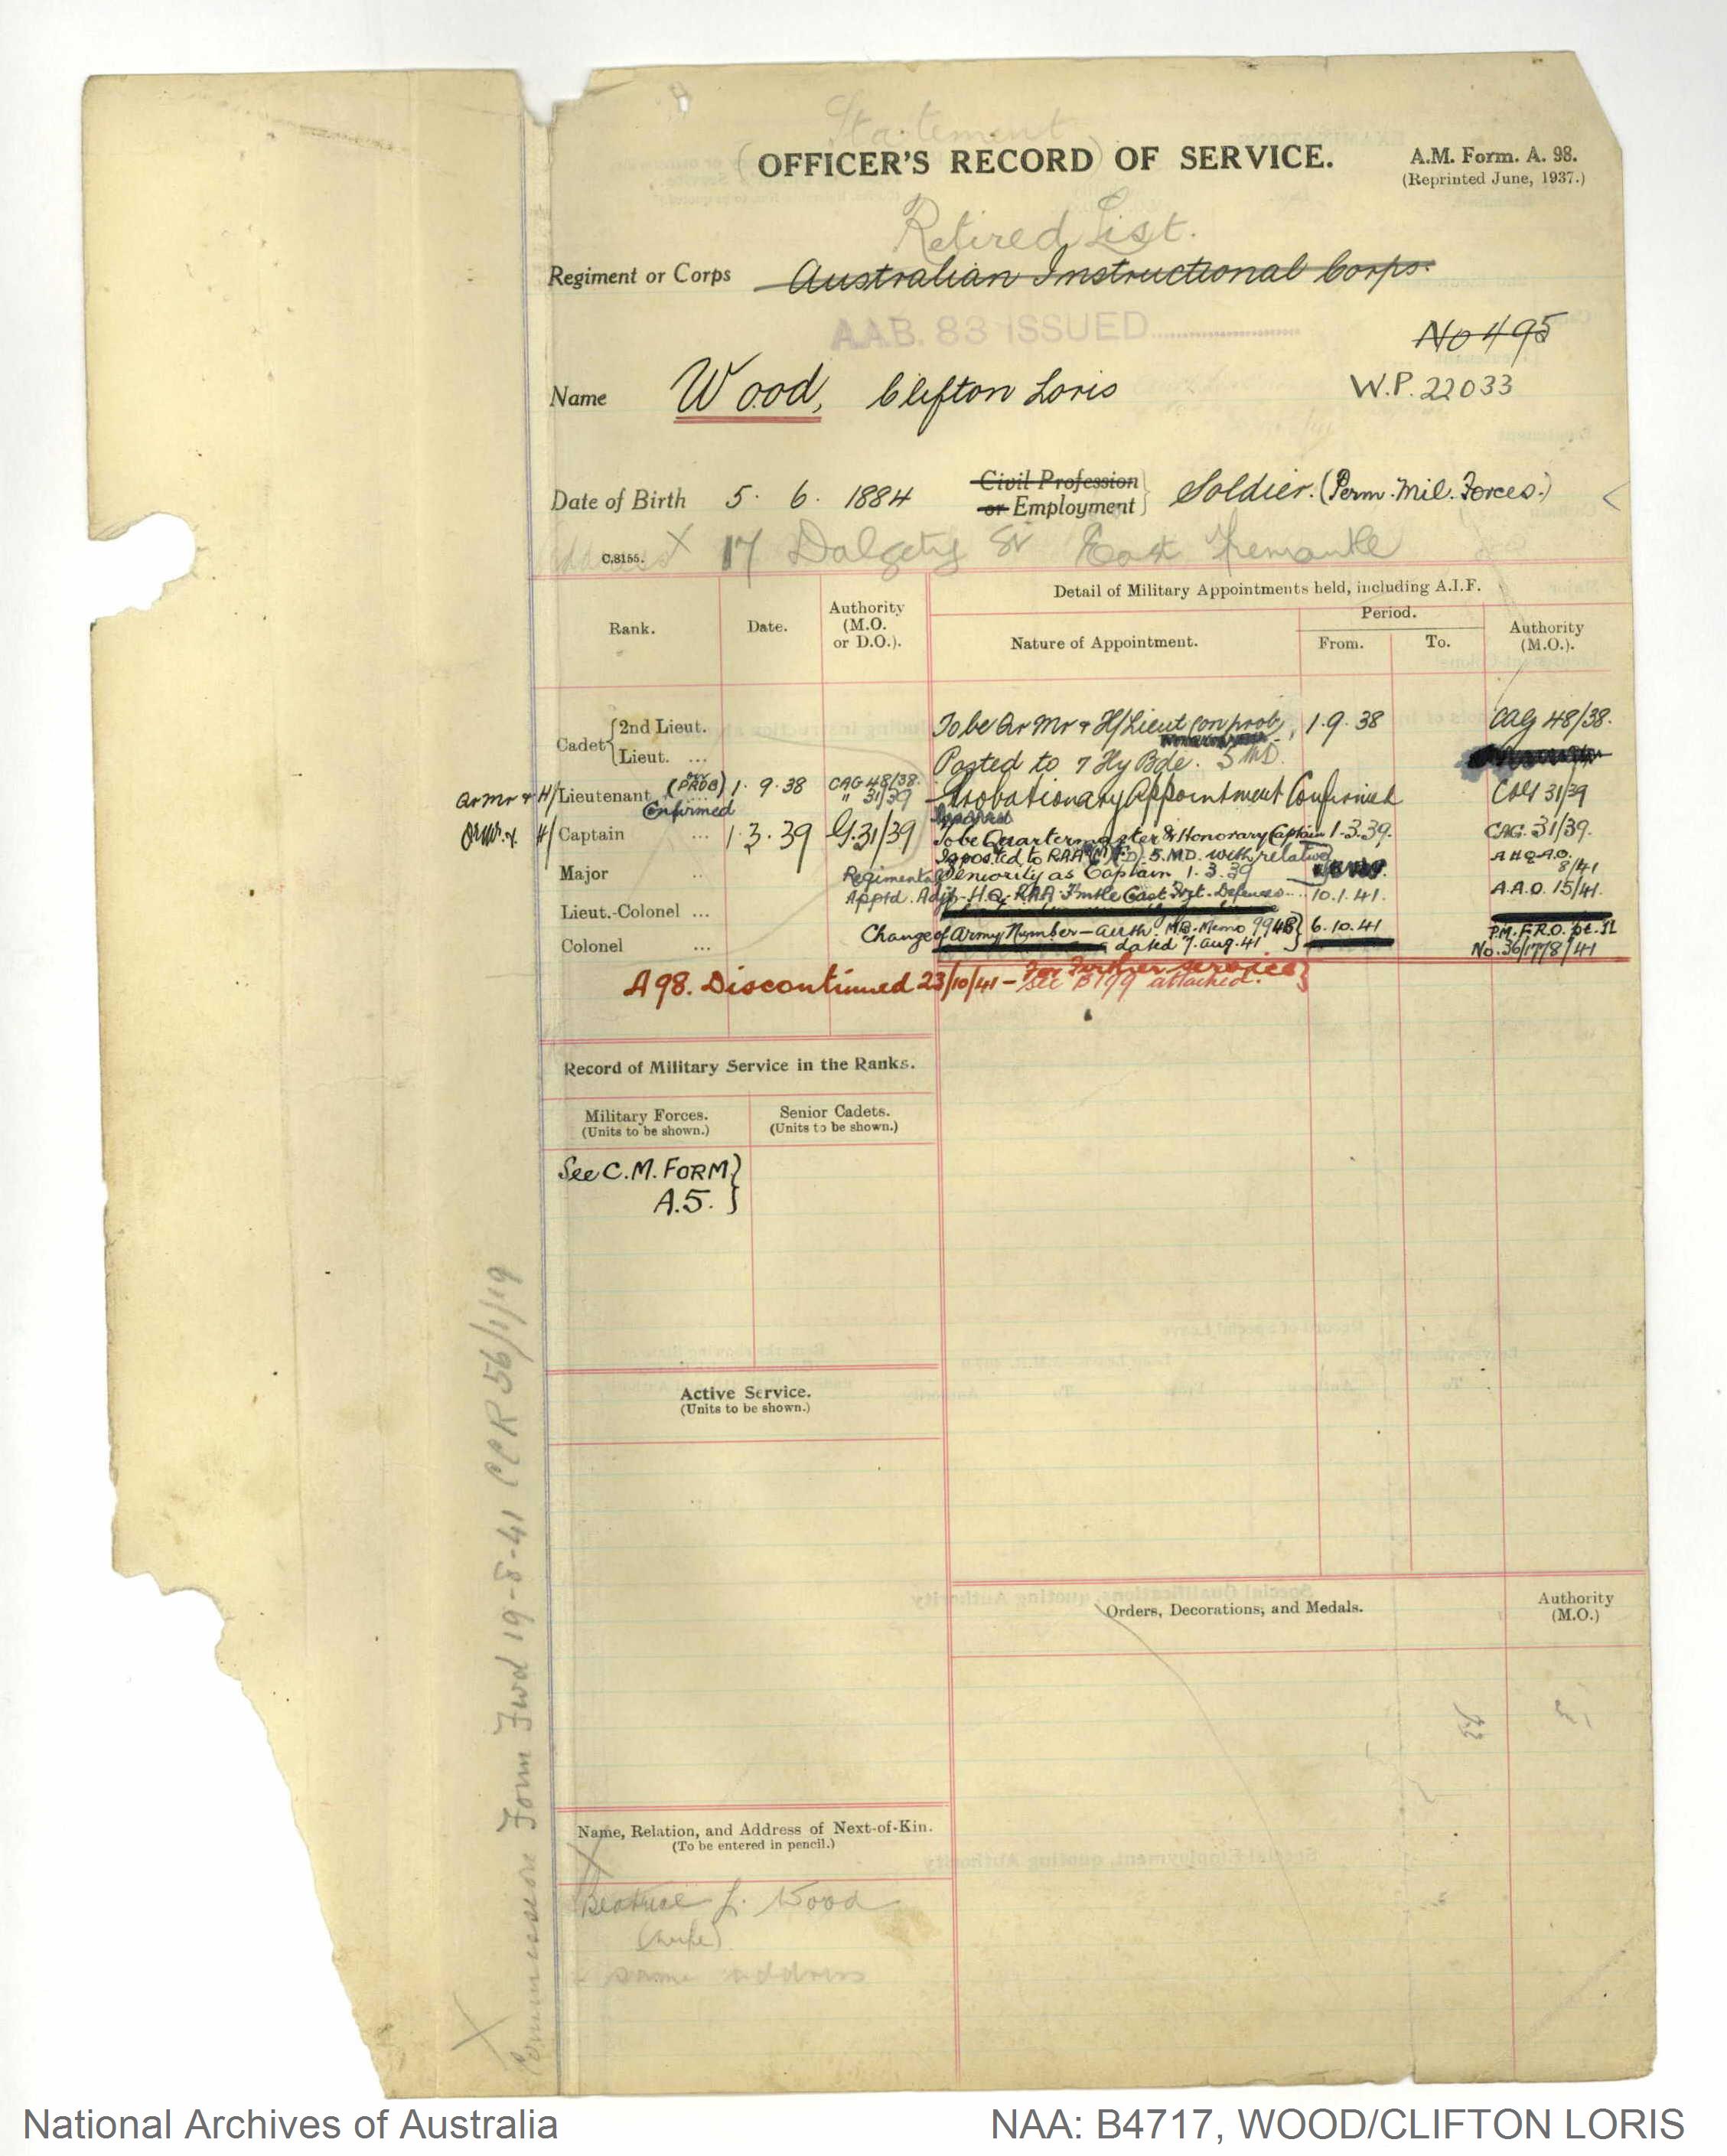 Statement
(OFFICER'S RECORD) OF SERVICE.
A.M. Form. A. 98.
(Reprinted June, 1937.)
Retired List.
Regiment or Corps Australian Instructional Corps.
A.A.B. 83 ISSUED
No 495
Name Wood, Clifton Loris
W.P. 22033
Date of Birth 5. 6. 1884
Civil Profession
or Employment } Soldier. (Perm. Mil. Forces.)
C.8155.
X 17 Dalgety St East Fremantle
Rank.
Date.
Authority
(M.O.
or D.O.).
Detail of Military Appointments held, including A.I.F.
Nature of Appointment.
Period.
From.
To.
Authority
(M.O.).
Cadet { 2nd Lieut.
Lieut. ...
To be Qr Mr & H/Lieut (on prob) 1.9.38 CAG 48/38.
Posted to 7 Hy Bde. 5 MD.
Qr Mr & H/ Lieutenant (PROB) 1.9.38 CAG 48/38.
Confirmed " 31/39
Probationary Appointment Confirmed CAG 31/39
H/ Captain ... 1.3.39 G.31/39
To be Quartermaster & Honorary Captain 1.3.39. CAG. 31/39.
Is posted to RAA (M & FD) 5.MD. with relative A.H.Q.A.O.
Major ..
Regimental Seniority as Captain 1.3.39 8/41
Apptd. Adjt. H.Q. RAA. Fmtle Coast Frt. Defences... 10.1.41. A.A.O. 15/41.
Lieut.-Colonel ...
Change of Army Number - auth. MB. Memo 9948 } 6.10.41
dated 7.Aug.41
No. 36/1778/41
Colonel ...
A 98. Discontinued 23/10/41 - For further service }
see B 199 attached.
Record of Military Service in the Ranks.
Military Forces.
(Units to be shown.)
Senior Cadets.
(Units to be shown.)
See C.M. FORM }
A.5. }
Active Service.
(Units to be shown.)
Orders, Decorations, and Medals.
Authority
(M.O.)
Name, Relation, and Address of Next-of-Kin.
(To be entered in pencil.)
Beatrice L. Wood
(wife)
same address
X Form Fwd 19-8-41 CCR 56/1/19
National Archives of Australia
NAA: B4717, WOOD/CLIFTON LORIS